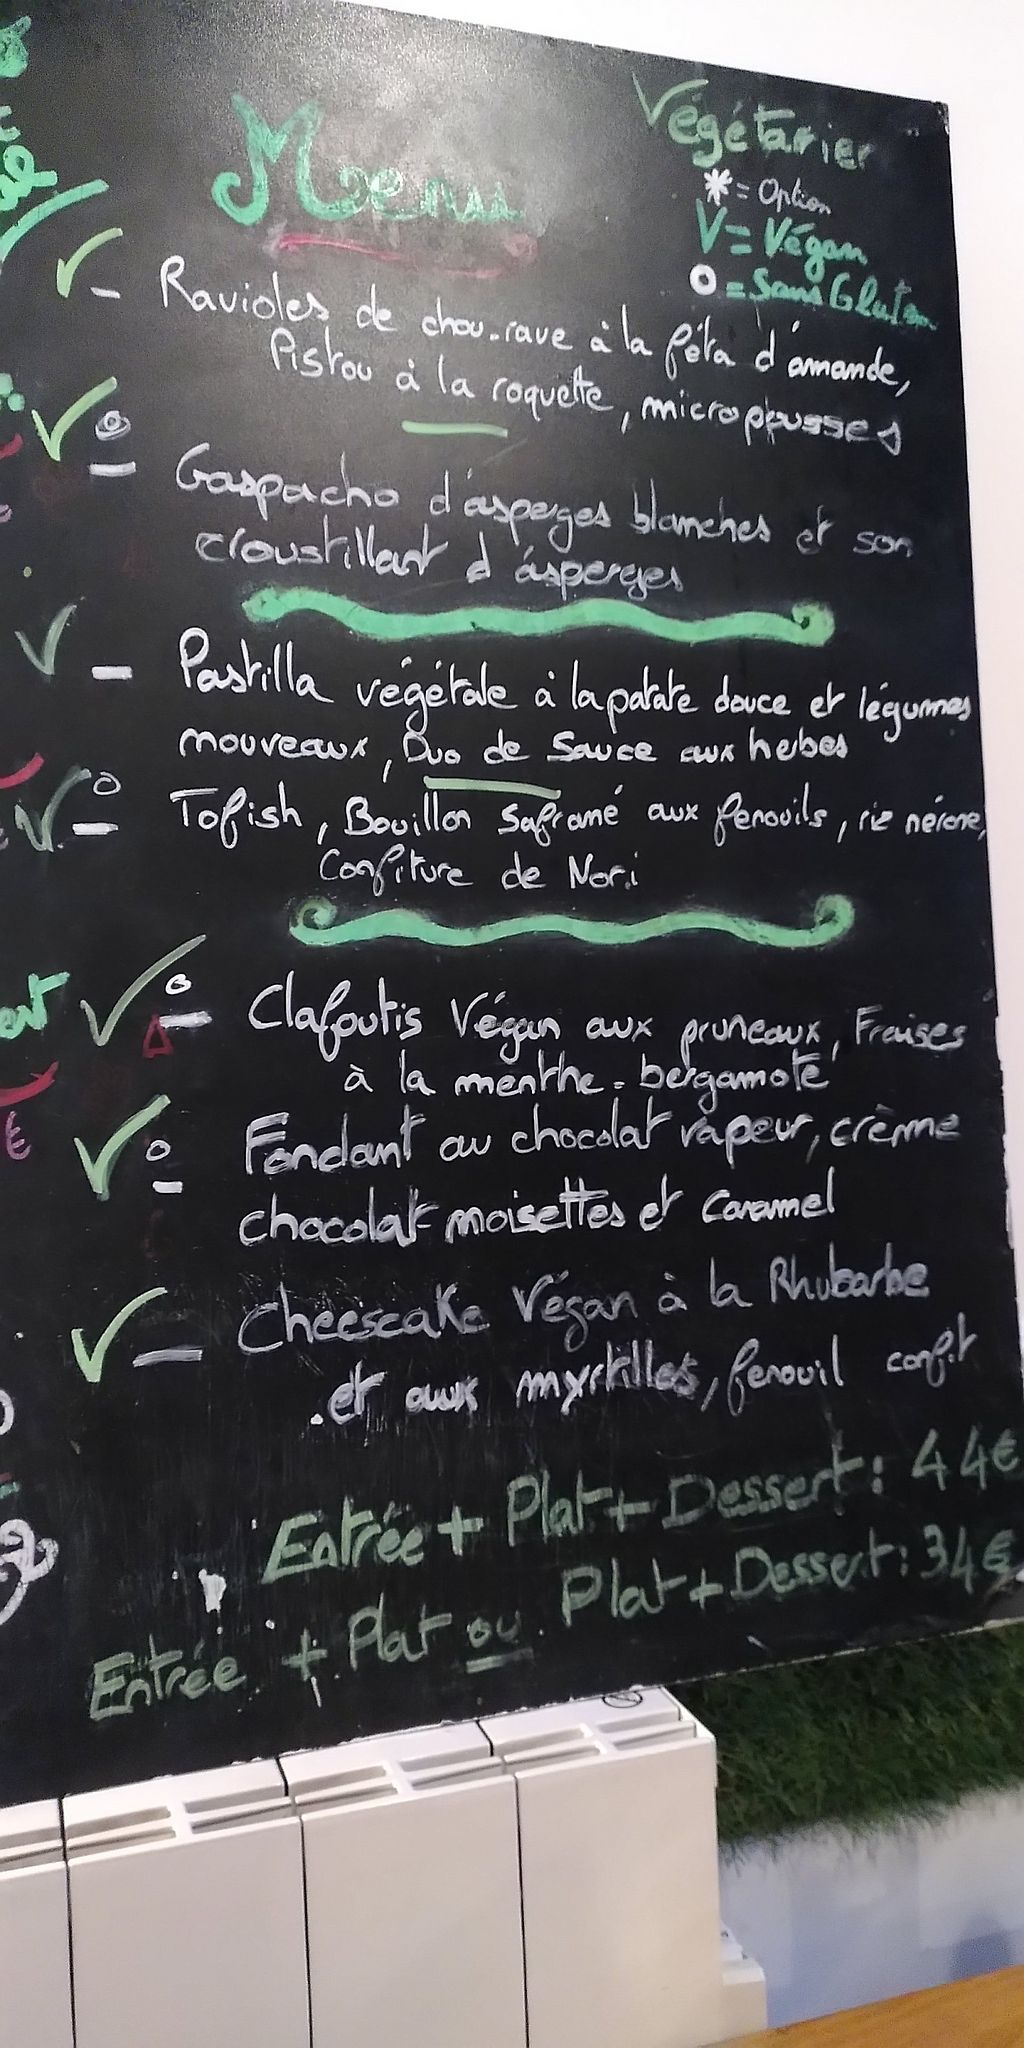 Menus
Végétarien
* = Option
V = Végan
O = Sans Gluten
V - Ravioles de chou-rave à la féta d'amande,
Pistou à la roquette, micropousses
V O - Gaspacho d'asperges blanches et son
croustillant d'asperges
V - Pastilla végétale à la patate douce et légumes
nouveaux, Duo de Sauce aux herbes
V O - Tofish, Bouillon Safrané aux fenouils, riz nérone,
Confiture de Nori
V O - Clafoutis Végan aux pruneaux, Fraises
à la menthe-bergamote
V O - Fondant au chocolat vapeur, crème
chocolat-noisettes et Caramel
V - Cheescake Végan à la Rhubarbe
et aux myrtilles, fenouil confit
Entrée + Plat + Dessert : 44€
Entrée + Plat ou Plat + Dessert : 34€